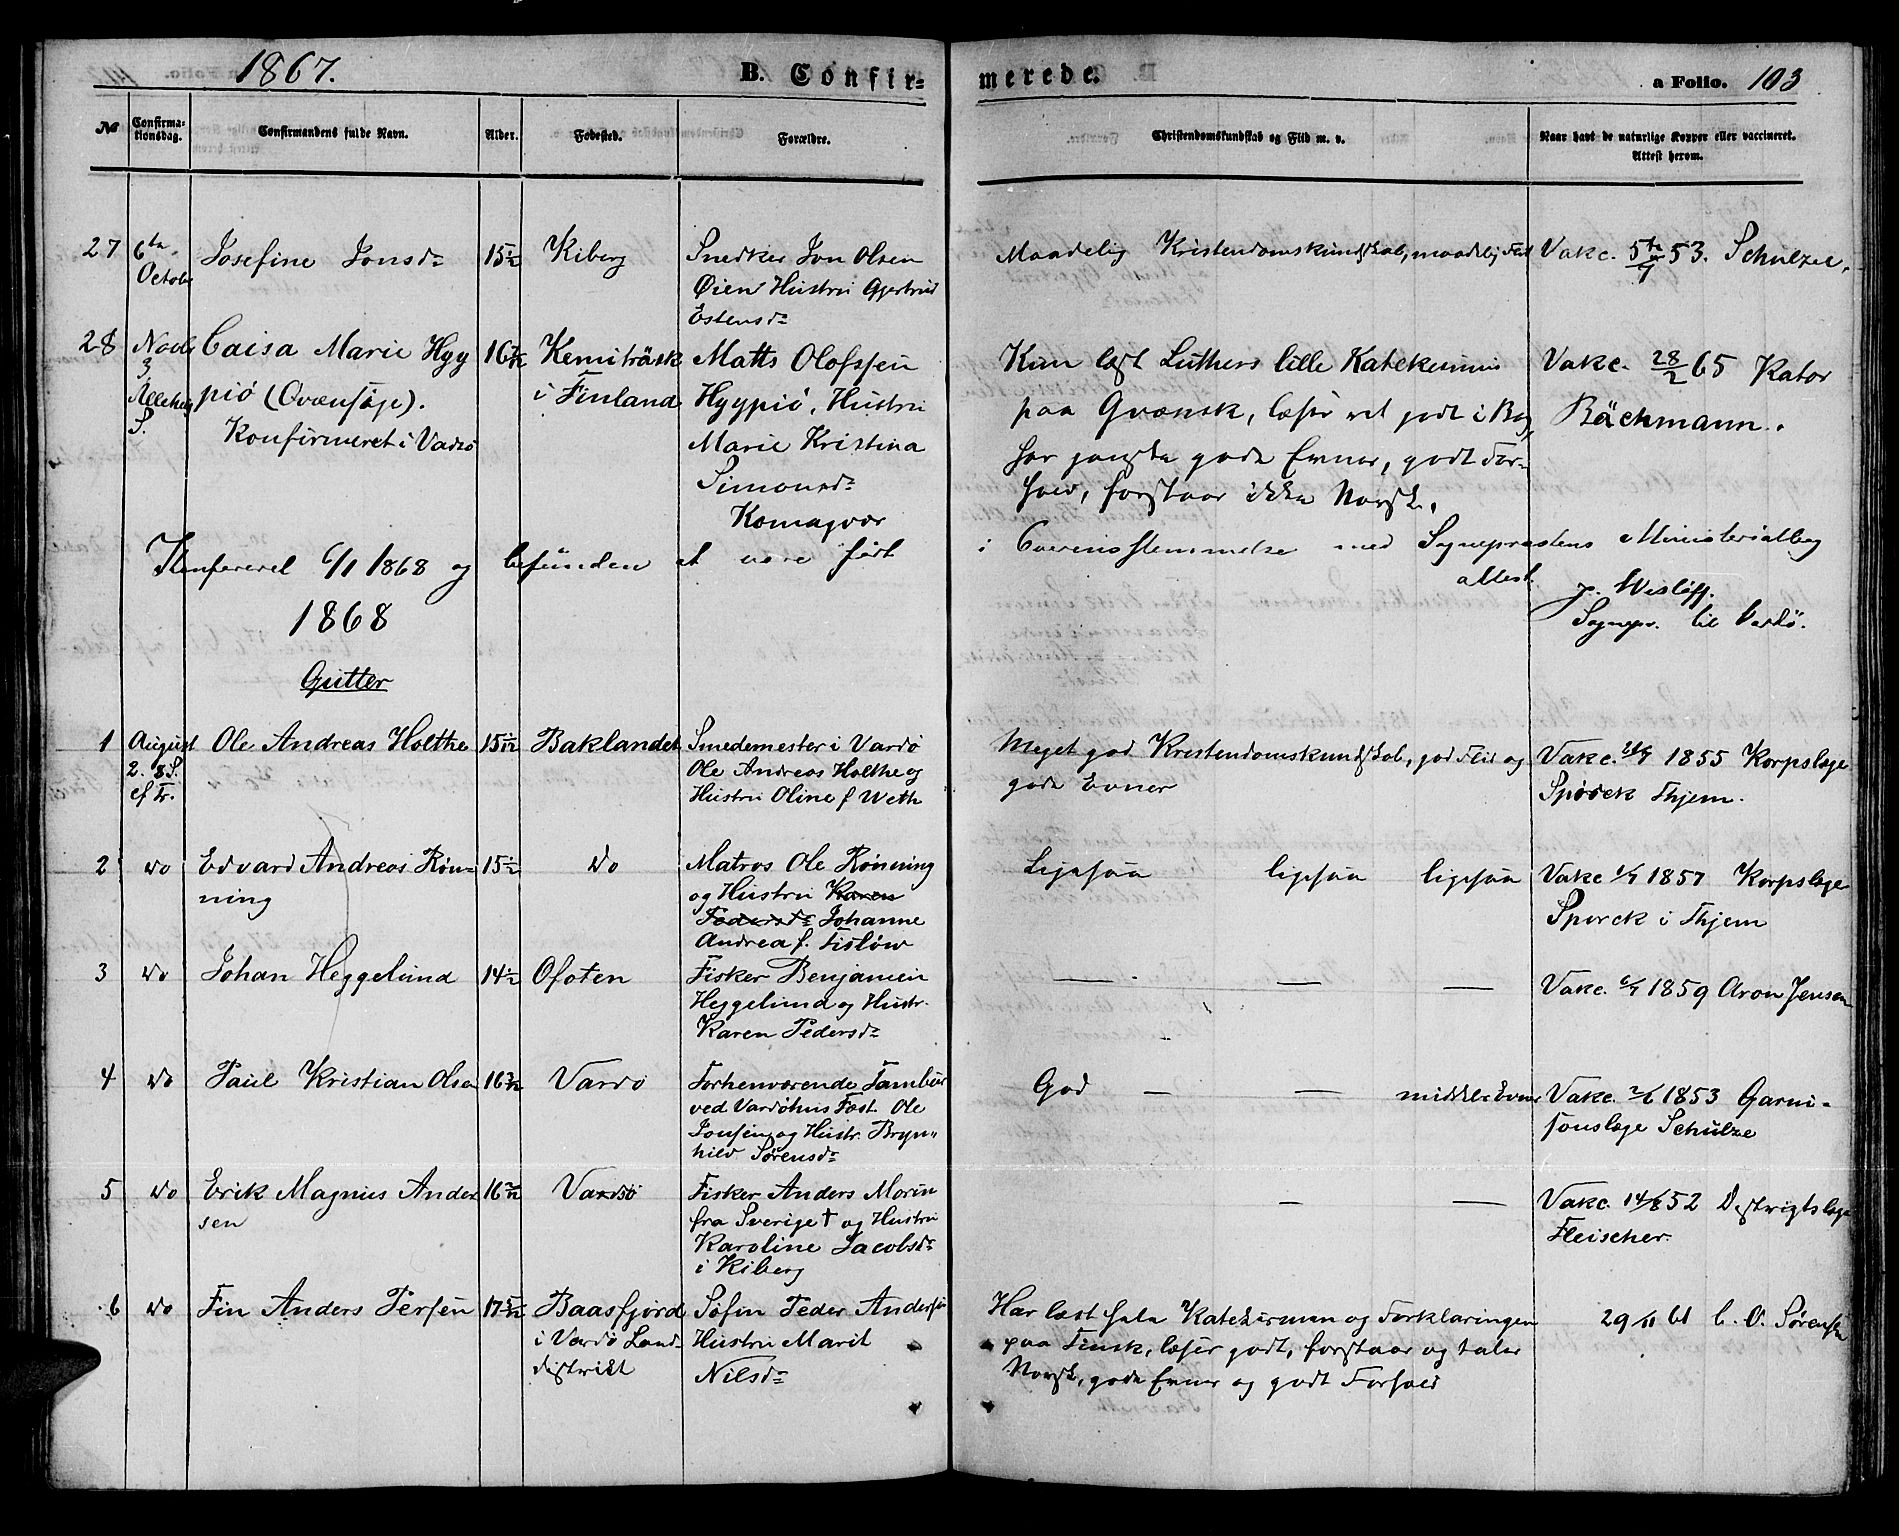 1867.
B. Confir-
merede.
a Folio. 103
№
Confirma-
tionsdag.
Confirmandens fulde Navn.
Alder.
Fødested.
Forældre.
Christendomskundskab og Flid m. v.
Naar havt de naturlige Kopper eller vaccineret.
Attest herom.
27
6te
Octobr
Josefine Jonsdr
15
Kiberg
Snedker Jon Olsen
Øien Hustru Gjertrud
Estensdr
Maadelig Kristendomskundskab, maadelig Flid
Vakc. 53. Schulze.
28
3
S.
Caisa Marie Hyy
piø (Qvænsøge).
Konfirmeret i Vadsø
16
Kemiträsk
i Finland
Matts Olofssen
Hyypiö, Hustru
Marie Kristina
Simonsdr
Komagvær
Kun læst Luthers lille Katekismus
paa Qvænsk, læser ret godt i Bog,
har ganske gode Evner, godt For-
hold, forstaar ikke Norsk.
Vakc. 28/2 65 Kator
Bächmann.
Konfereret 6/1 1868 og befunden at være ført
i Overensstemmelse med Sognepræstens Ministerialbog
attest.
J. Wisløff.
Sognepr. til Vardö.
1868
Gutter
1
August
2. 8 S.
ef Tr.
Ole Andreas Holthe
15
Baklandet
Smedemester i Vardø
Ole Andreas Holthe og
Hustru Oline f Weth
Meget god Kristendomskundskab, god Flid og
gode Evner
Vakc. 1855 Korpslæge
Spørck Thjem.
2
do
Edvard Andreas Røn-
ning
15
do
Matros Ole Rönning
og Hustru Karen
Pedersdr Johanne
Andrea f. Fislöw
Ligesaa ligesaa ligesaa
Vakc 1857 Korpslæge
Sporck i Thjem
3
do
Johan Heggelund
14½
Ofoten
Fisker Benjamin
Heggelund og Hustr.
Karen Pedersdr
— — —
Vakc. 1859 Aron Jensen
4
do
Paul Kristian Olsen
16
Vardø
Forhenværende Tambur
ved Vardøhus Fæst. Ole
Jonsen og Hustr. Bryn-
hild Sørensdr
God — — middels Evner
Vakc. 1853 Garni-
sonslæge Schulze
5
do
Erik Magnus Ander
sen
16
Vardø
Fisker Anders Morin
fra Sverige † og Hustru
Karoline Jacobsdr
i Kiberg
— —
Vakc. 14/6 52 Distrigtslæge
Fleischer.
6
do
Fin Anders Persen
17
Baasfjord
i Vardø Land-
distrikt
Søfin Peder Andersen
Hustru Marit
Nilsdr
Har læst hele Katekismen og Forklaringen
paa Finsk, læser godt, forstaar og taler
Norsk, gode Evner og godt Forhold
29/11 61 C. O. Sørensen